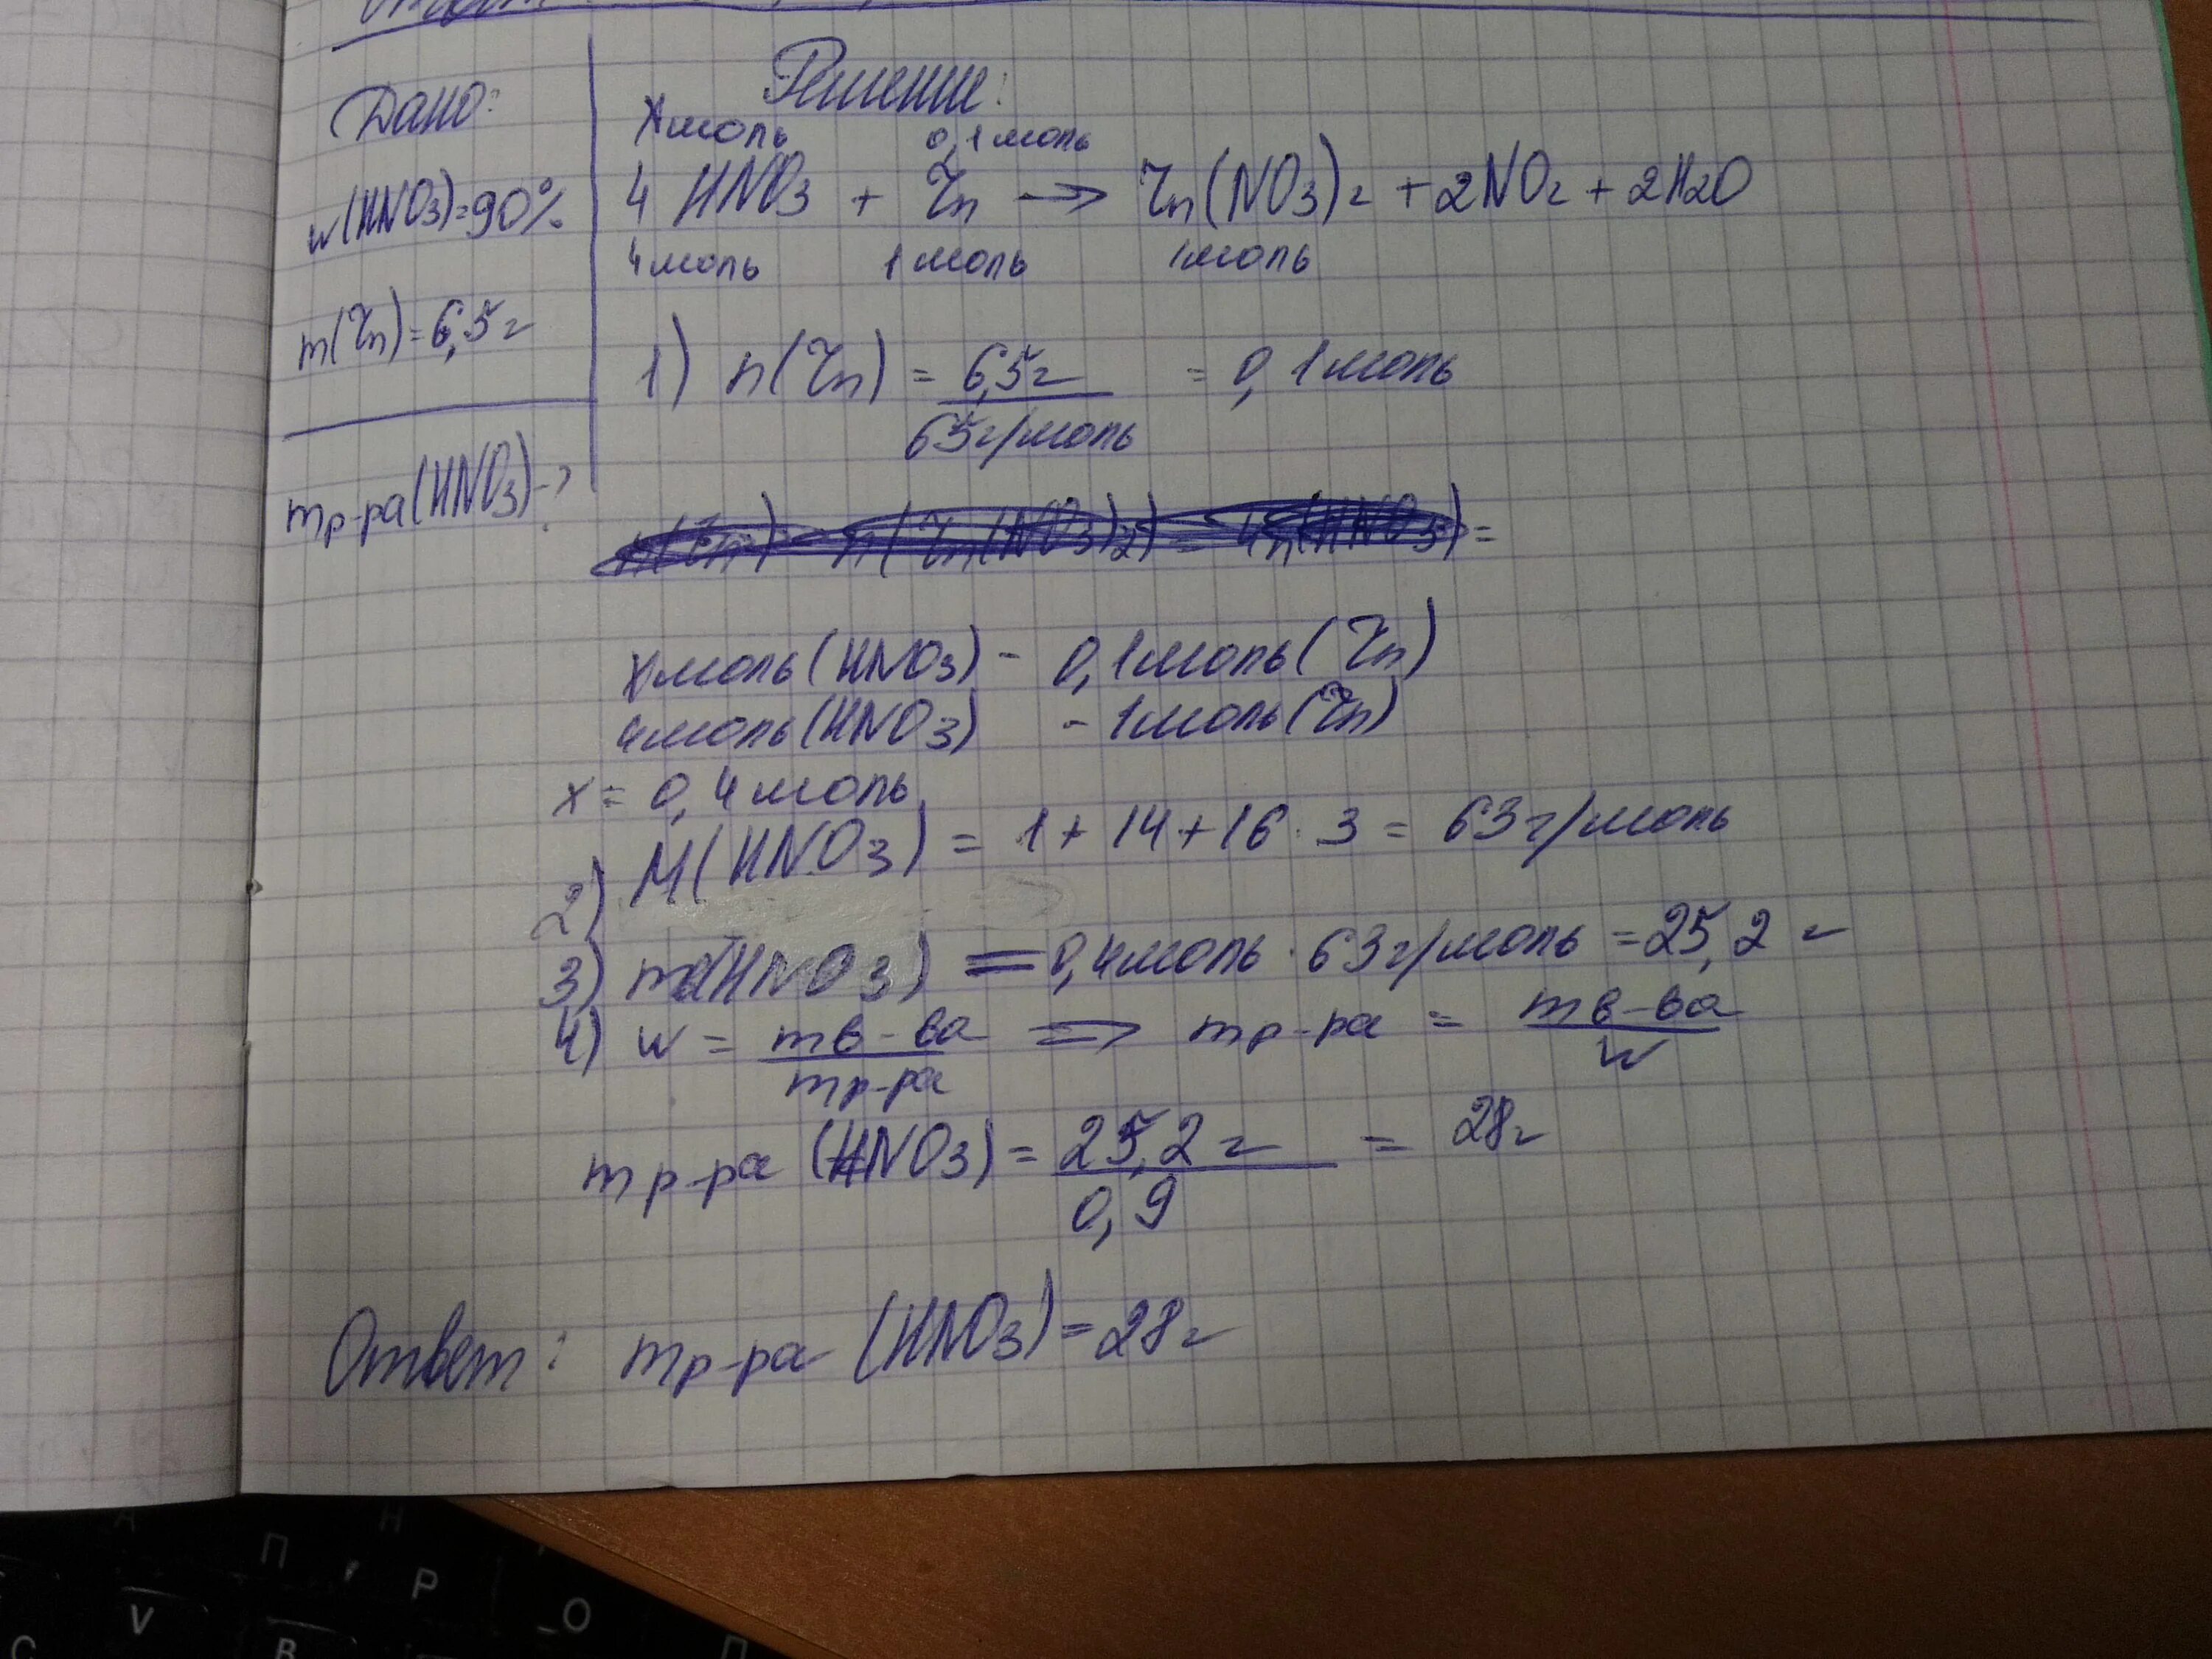 Дано:
w(HNO3)=90%
m(Zn)=6,5г
mр-ра(HNO3)-?
Решение:
x моль 0,1 моль
4 HNO3 + Zn → Zn(NO3)2 + 2NO2 + 2H2O
4 моль 1 моль 1 моль
1) n(Zn) = 6,5г / 65г/моль = 0,1 моль
n(Zn) = n(Zn(NO3)2) = 4n(HNO3) =
x моль (HNO3) - 0,1 моль (Zn)
4 моль (HNO3) - 1 моль (Zn)
x = 0,4 моль
2) M(HNO3) = 1 + 14 + 16 · 3 = 63 г/моль
3) m(HNO3) = 0,4 моль · 63 г/моль = 25,2 г
4) w = mв-ва / mр-ра => mр-ра = mв-ва / w
mр-ра (HNO3) = 25,2 г / 0,9 = 28г
Ответ: mр-ра (HNO3) = 28г
А П Н , Р
С V В _ О П